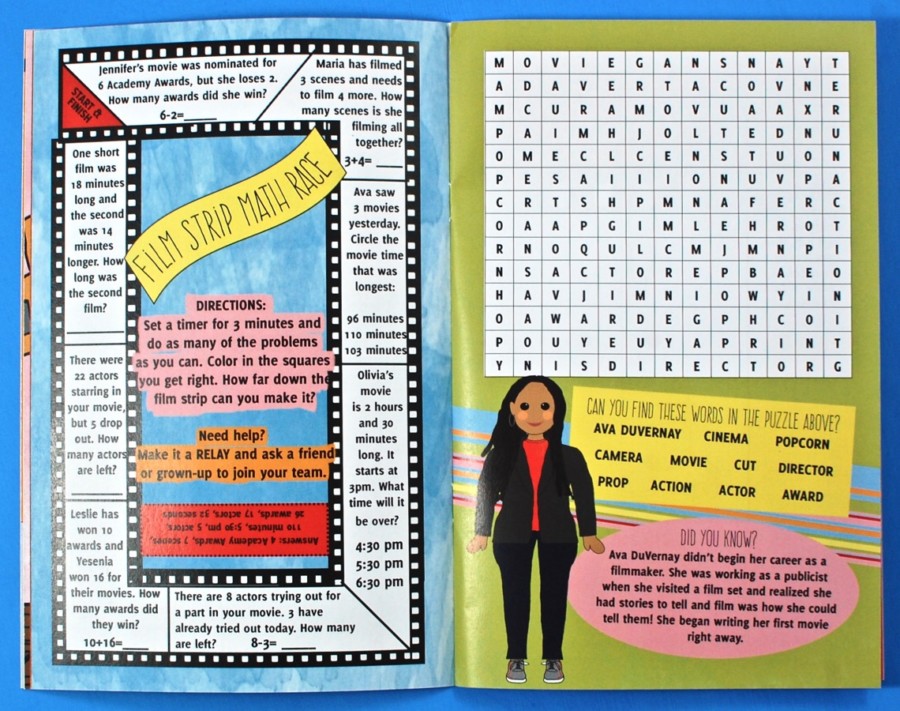 START &
FINISH
Jennifer's movie was nominated for
6 Academy Awards, but she loses 2.
How many awards did she win?
6-2=____
Maria has filmed
3 scenes and needs
to film 4 more. How
many scenes is she
filming all
together?
3+4= ____
Ava saw
3 movies
yesterday.
Circle the
movie time
that was
longest:
96 minutes
110 minutes
103 minutes
Olivia's
movie
is 2 hours
and 30
minutes
long. It
starts at
3pm. What
time will it
be over?
4:30 pm
5:30 pm
6:30 pm
There are 8 actors trying out for
a part in your movie. 3 have
already tried out today. How many
are left? 8-3=____
Leslie has
won 10
awards and
Yesenia
won 16 for
their movies. How
many awards did
they win?
10+16=____
There were
22 actors
starring in
your movie,
but 5 drop
out. How
many actors
are left?
One short
film was
18 minutes
long and
the second
was 14
minutes
longer. How
long was
the second
film?
FILM STRIP MATH RACE
DIRECTIONS:
Set a timer for 3 minutes and
do as many of the problems
as you can. Color in the squares
you get right. How far down the
film strip can you make it?
Need help?
Make it a RELAY and ask a friend
or grown-up to join your team.
Answers: 4 Academy Awards, 7 scenes,
110 minutes, 5:30 pm, 5 actors,
26 awards, 17 actors, 32 seconds
M O V I E G A N S N A Y T
A D A V E R T A C O V N E
M C U R A M O V U A A X R
P A I M H J O L T E D N U
O M E C L C E N S T U O N
P E S A I I I O N U V P A
C R T S H P M N A F E R C
O A A P G I M L E H R O T
R N O Q U L C M J M N P I
N S A C T O R E P B A E O
H A V J I M N I O W Y I N
O A W A R D E G P H C O I
P O U Y E U Y A P R I N T
Y N I S D I R E C T O R G
CAN YOU FIND THESE WORDS IN THE PUZZLE ABOVE?
AVA DUVERNAY CINEMA POPCORN
CAMERA MOVIE CUT DIRECTOR
PROP ACTION ACTOR AWARD
DID YOU KNOW?
Ava DuVernay didn't begin her career as a
filmmaker. She was working as a publicist
when she visited a film set and realized she
had stories to tell and film was how she could
tell them! She began writing her first movie
right away.